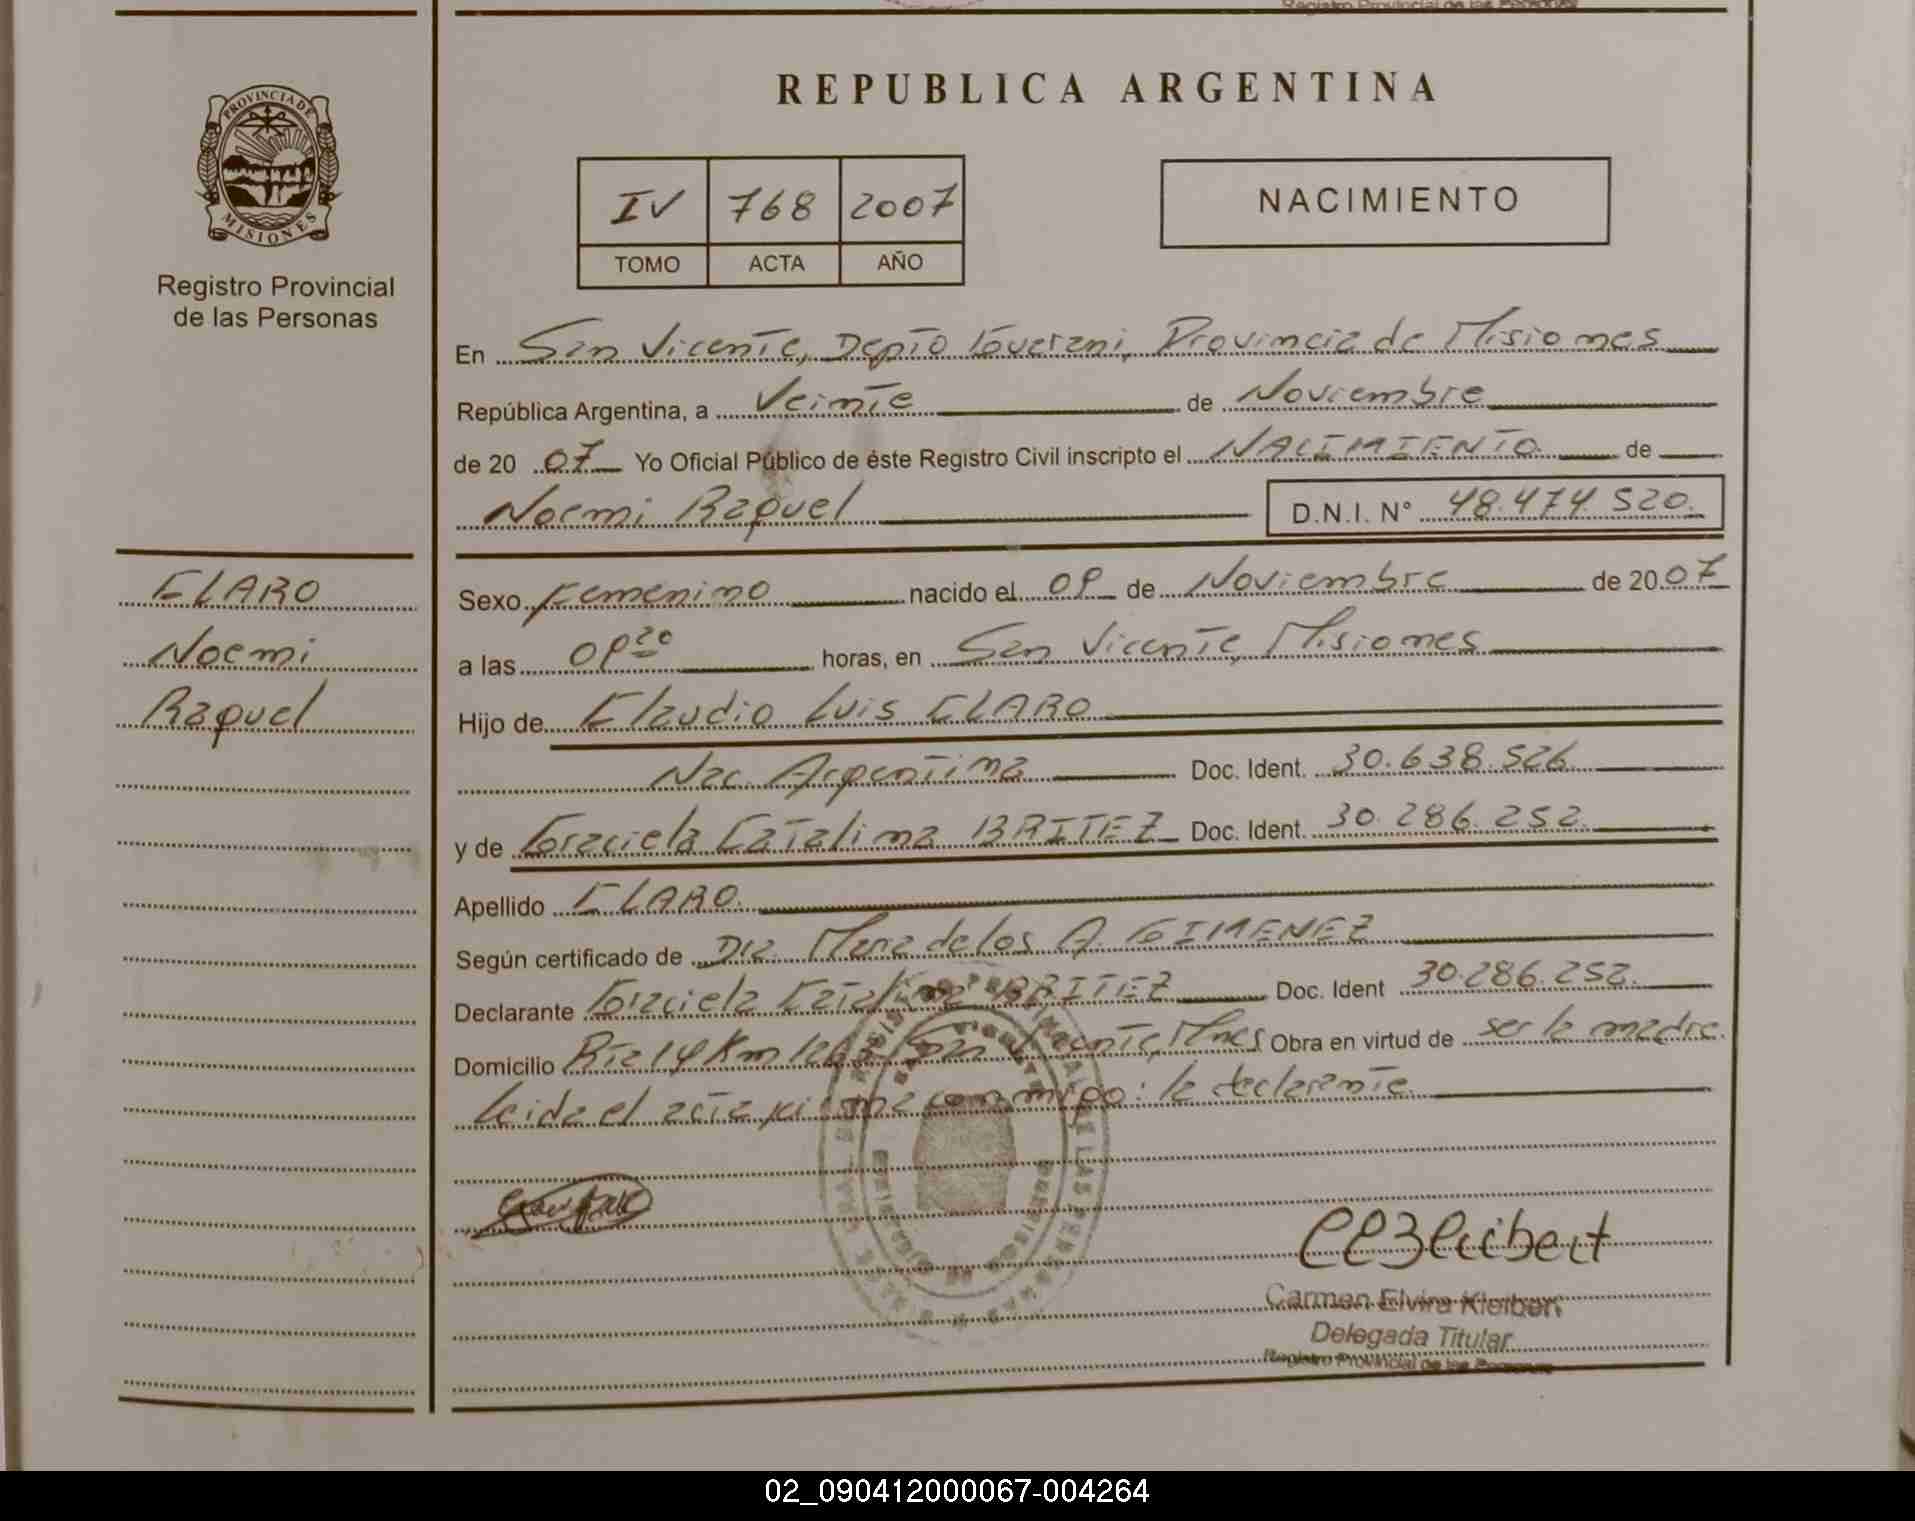 Registro Provincial de las Personas
PROVINCIA DE
MISIONES
Registro Provincial
de las Personas
REPUBLICA ARGENTINA
IV 768 2007
TOMO ACTA AÑO
NACIMIENTO
En San Vicente, Depto Guarani, Provincia de Misiones
República Argentina, a Veinte de Noviembre
de 20 07 Yo Oficial Público de éste Registro Civil inscripto el NACIMIENTO de
Noemi Raquel D.N.I. N° 48.474.520.
CLARO
Noemi
Raquel
Sexo Femenino nacido el 09 de Noviembre de 20 07
a las 09 20 horas, en San Vicente, Misiones
Hijo de Claudio Luis CLARO
Nac. Argentina Doc. Ident. 30.638.526
y de Graciela Catalina BRITEZ Doc. Ident. 30.286.252.
Apellido CLARO.
Según certificado de Dra. Maria de los A. GIMENEZ
Declarante Graciela Catalina BRITEZ Doc. Ident 30.286.252.
Domicilio Rta 14 Km San Vicente, Mnes Obra en virtud de ser la madre.
Leida el acta firma conmigo: la declarante.
Carmen Elvira Kleibert
Delegada Titular
Registro Provincial de las Personas
02_090412000067-004264